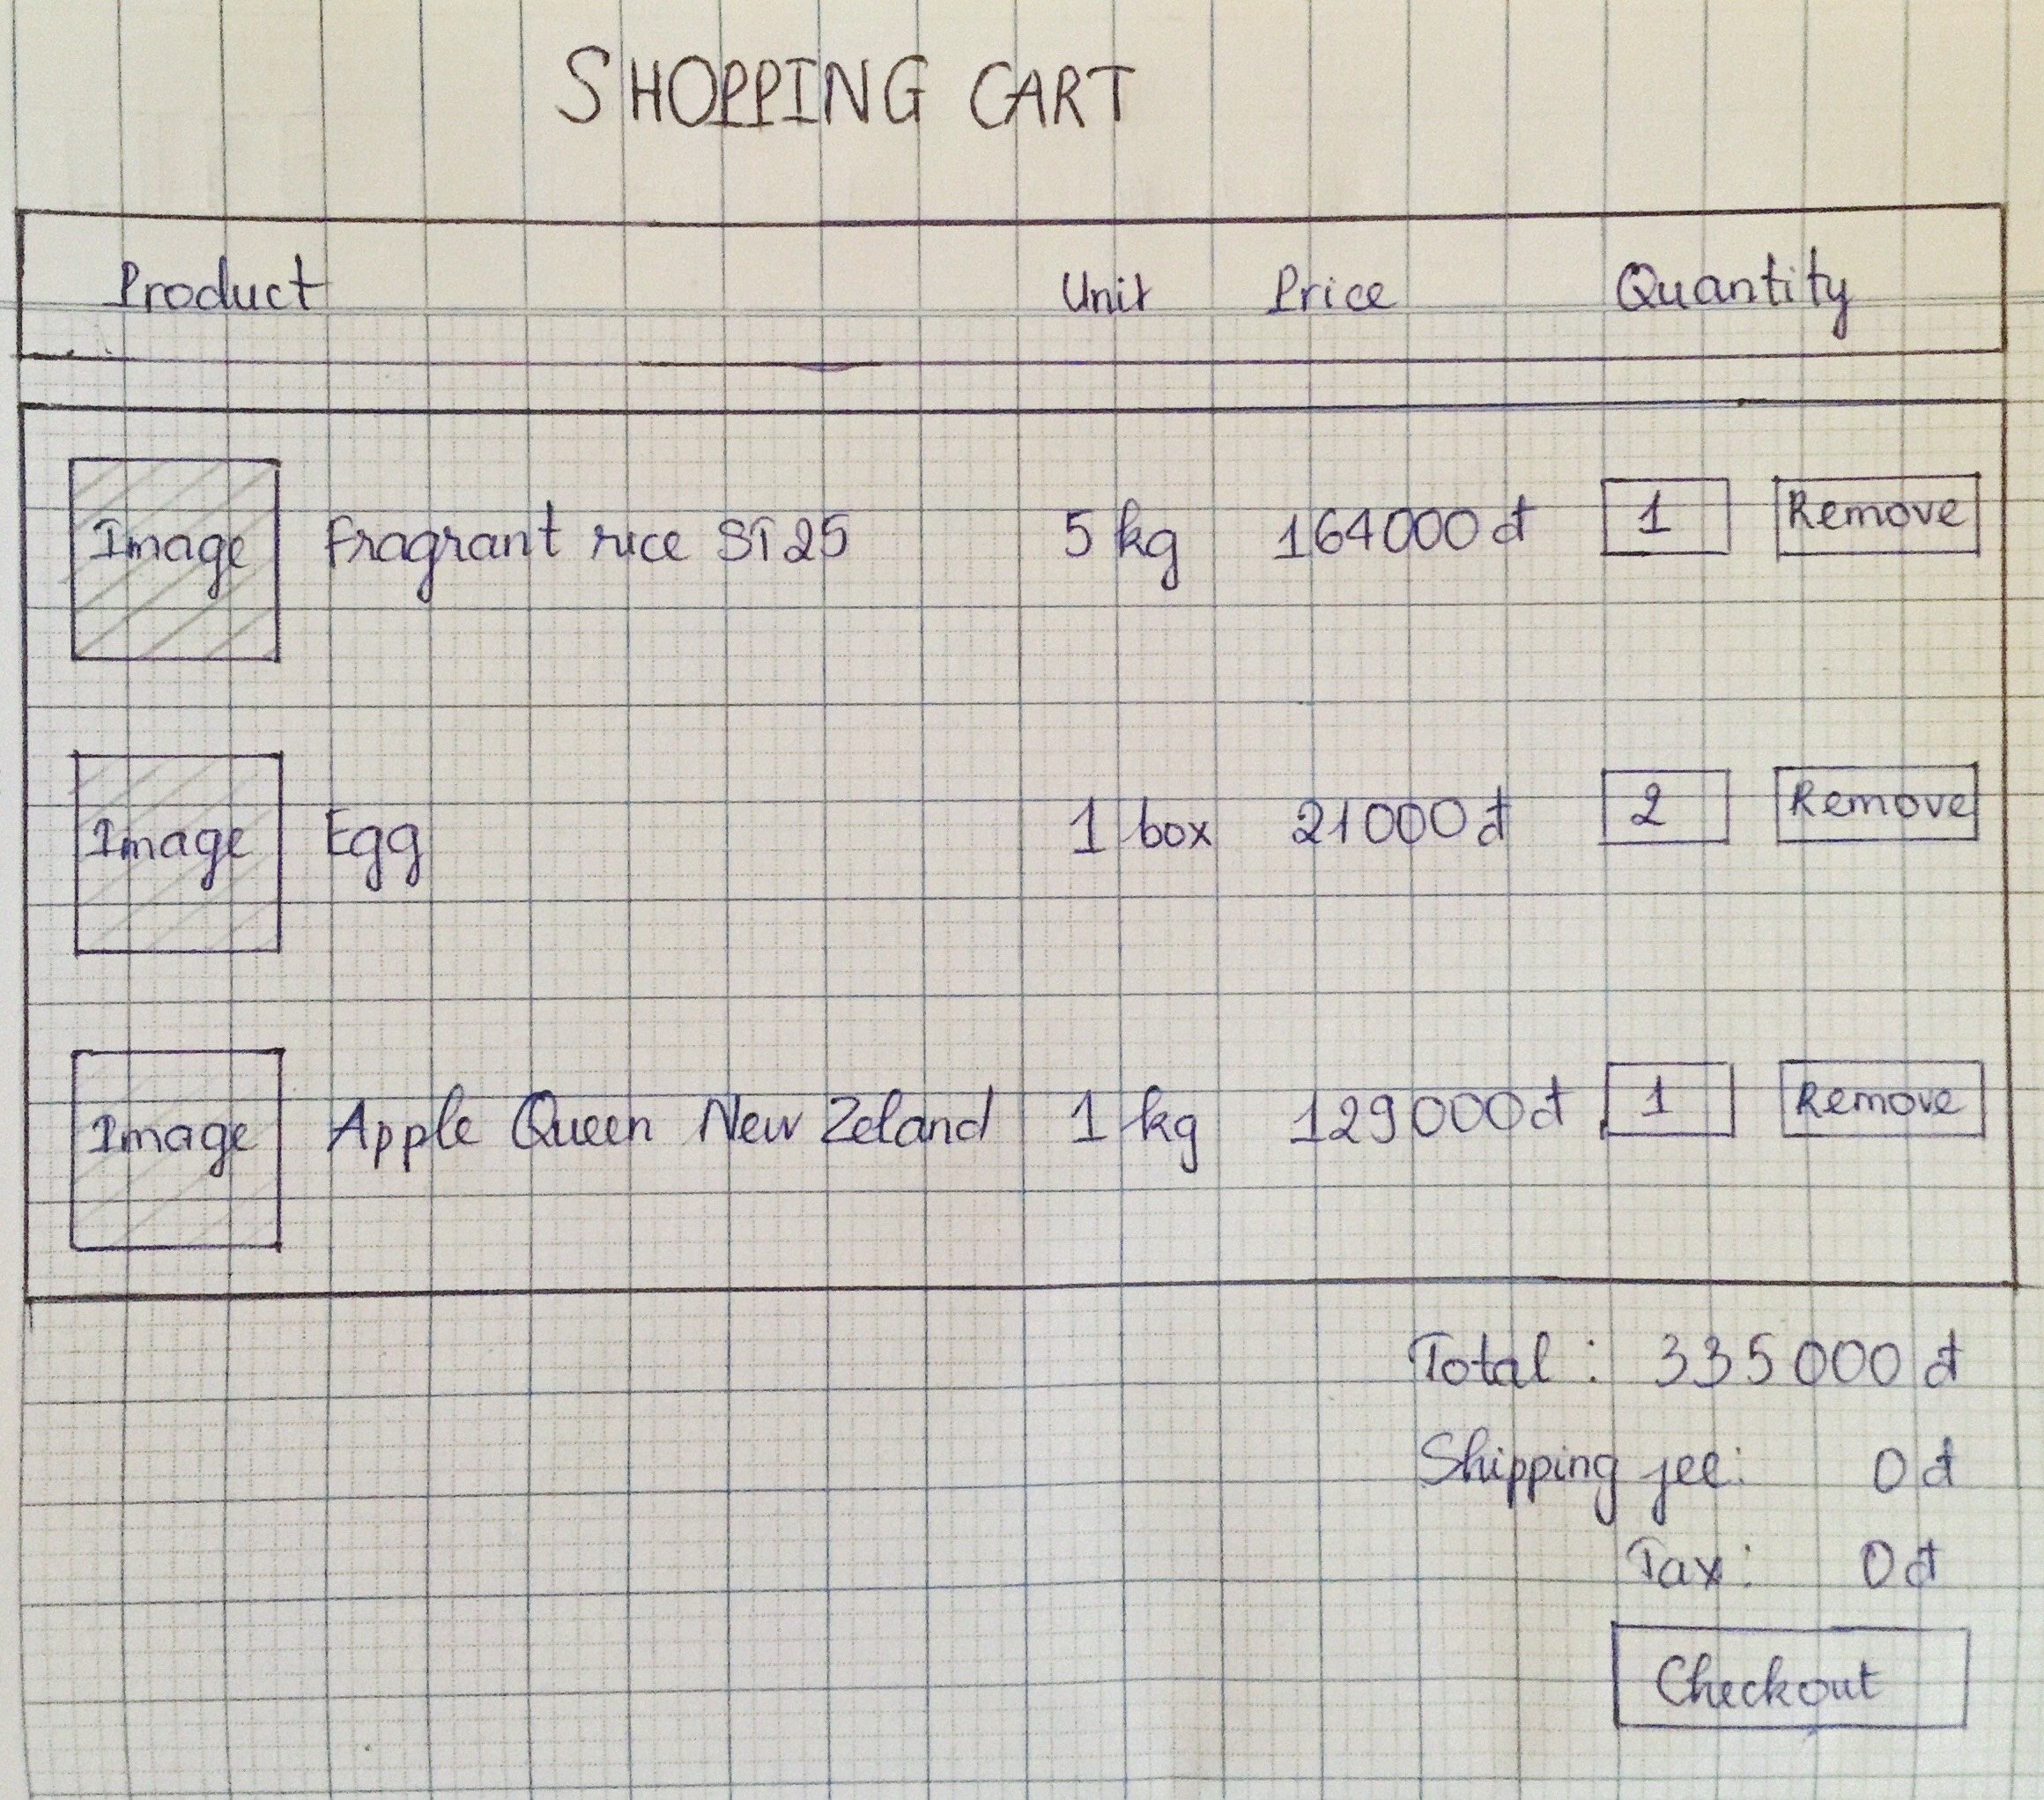 SHOPPING CART
Product Unit Price Quantity
Image Fragrant rice ST25 5 kg 164000đ 1 Remove
Image Egg 1 box 21000đ 2 Remove
Image Apple Queen New Zeland 1 kg 129000đ 1 Remove
Total : 335000đ
Shipping fee: 0đ
Tax: 0đ
Checkout